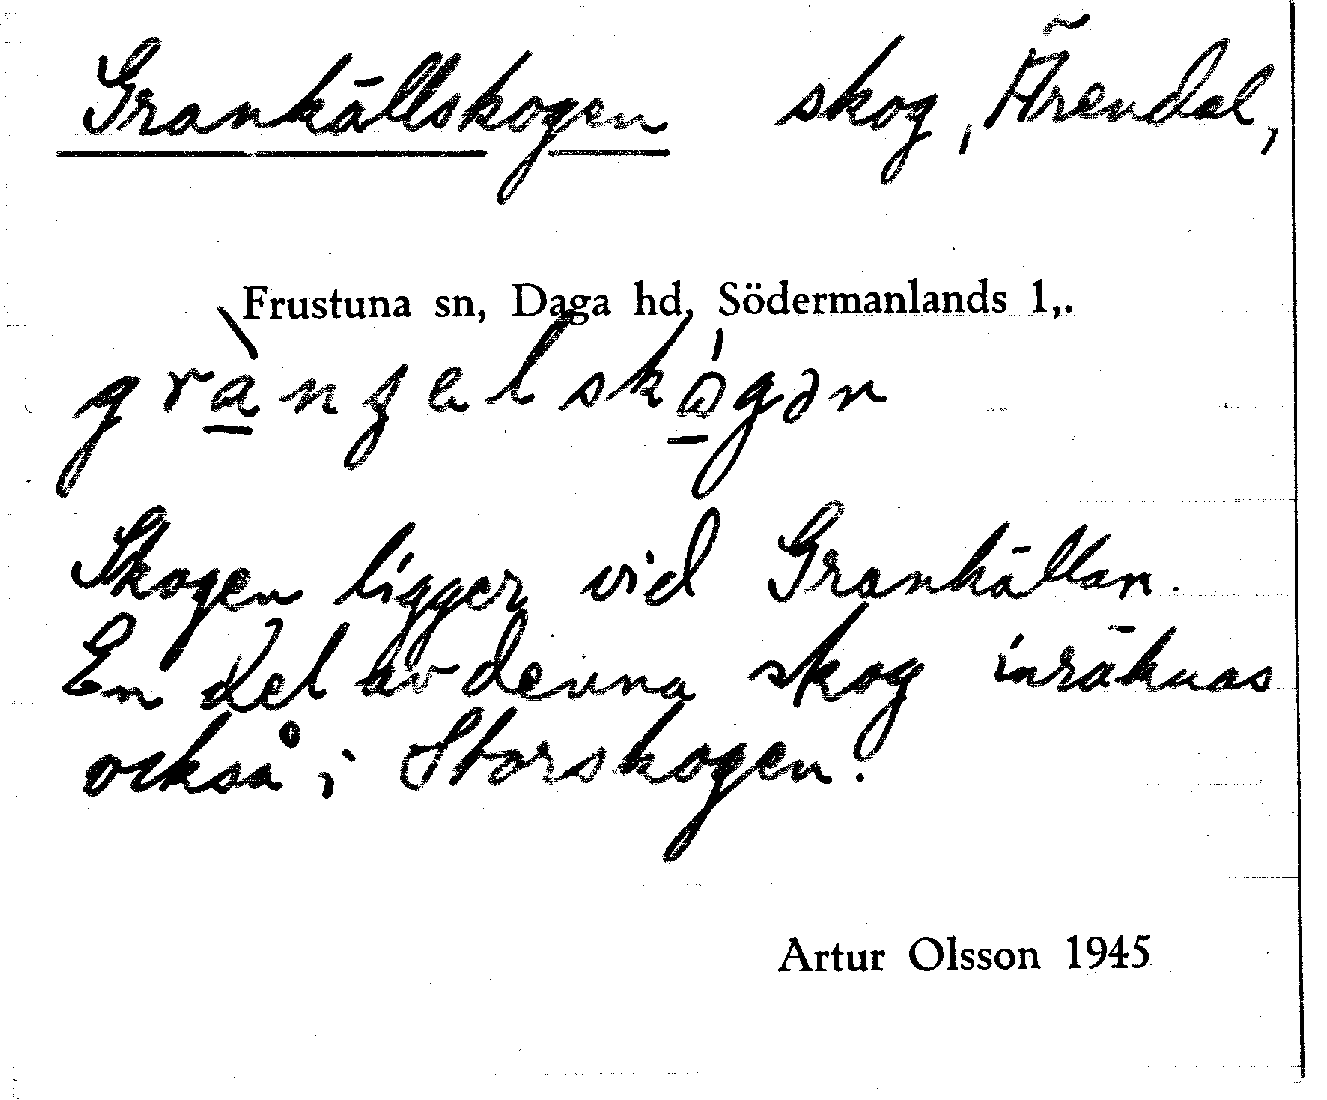 Grankällskogen skog, Ärendal,
Frustuna sn, Daga hd, Södermanlands l,.
Skogen ligger vid Grankällan.
En del av denna skog inräknas
också i Storskogen.
Artur Olsson 1945